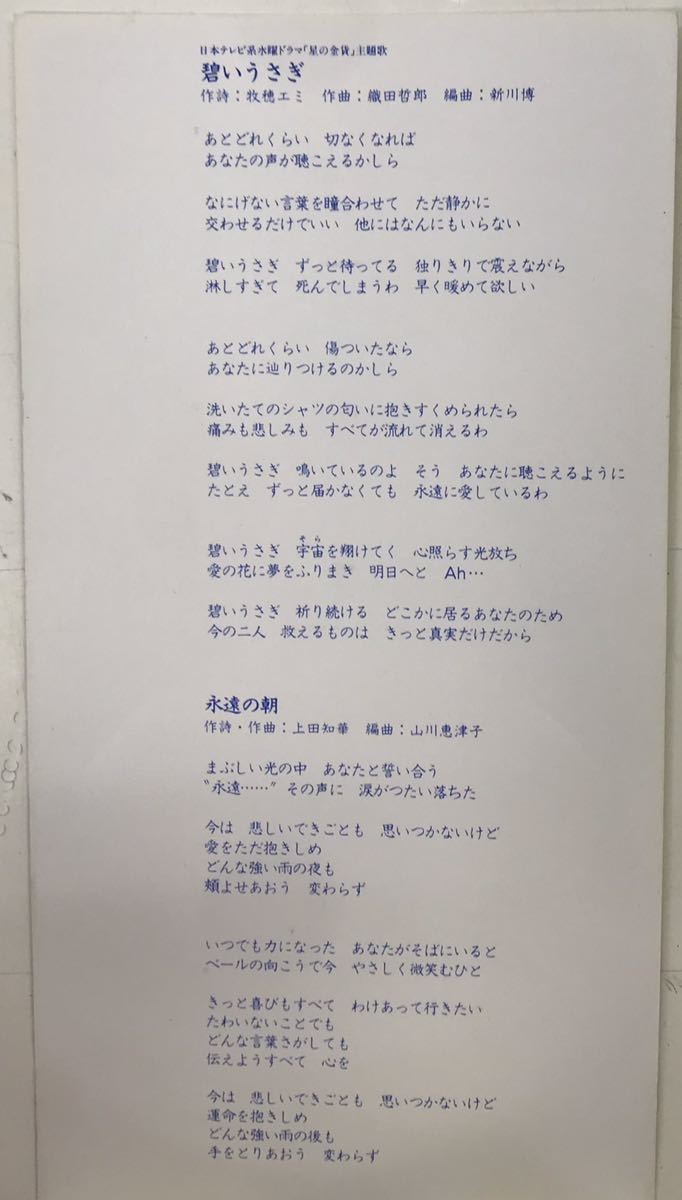 日本テレビ系水曜ドラマ「星の金貨」主題歌
碧いうさぎ
作詩：牧穂エミ　作曲：織田哲郎　編曲：新川博
あとどれくらい　切なくなれば
あなたの声が聴こえるかしら
なにげない言葉を瞳合わせて　ただ静かに
交わせるだけでいい　他にはなんにもいらない
碧いうさぎ　ずっと待ってる　独りきりで震えながら
淋しすぎて　死んでしまうわ　早く暖めて欲しい
あとどれくらい　傷ついたなら
あなたに辿りつけるのかしら
洗いたてのシャツの匂いに抱きすくめられたら
痛みも悲しみも　すべてが流れて消えるわ
碧いうさぎ　鳴いているのよ　そう　あなたに聴こえるように
たとえ　ずっと届かなくても　永遠に愛しているわ
そら
碧いうさぎ　宇宙を翔けてく　心照らす光放ち
愛の花に夢をふりまき　明日へと　Ah…
碧いうさぎ　祈り続ける　どこかに居るあなたのため
今の二人　救えるものは　きっと真実だけだから
永遠の朝
作詩・作曲：上田知華　編曲：山川恵津子
まぶしい光の中　あなたと誓い合う
〝永遠……〟その声に　涙がつたい落ちた
今は　悲しいできごとも　思いつかないけど
愛をただ抱きしめ
どんな強い雨の夜も
頬よせあおう　変わらず
いつでも力になった　あなたがそばにいると
ベールの向こうで今　やさしく微笑むひと
きっと喜びもすべて　わけあって行きたい
たわいないことでも
どんな言葉さがしても
伝えようすべて　心を
今は　悲しいできごとも　思いつかないけど
運命を抱きしめ
どんな強い雨の後も
手をとりあおう　変わらず